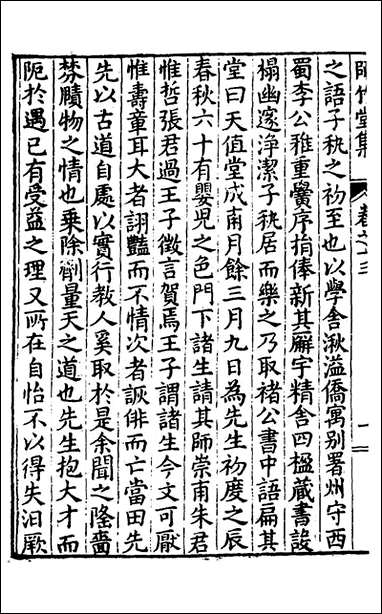 陋竹堂集 卷之十三 一
之語子秇之初至也以學舍湫溢僑寓别署州守西
蜀李公雅重黌序捐俸新其廨宇精舍四楹藏書設
榻幽邃淨潔子秇居而樂之乃取褚公書中語扁其
堂曰天值堂成甫月餘三月九日為先生初度之辰
春秋六十有嬰児之色門下諸生請其師崇甫朱君
惟哲張君過王子徵言賀焉王子謂諸生今文可厭
惟壽章耳大者詡豔而不情次者詼俳而亡當田先
先以古道自處以實行教人奚取於是余聞之隆嗇
棼賾物之情也乗除劑量天之道也先生抱大才而
阨於遇已有受益之理又所在自怡不以得失汩厥